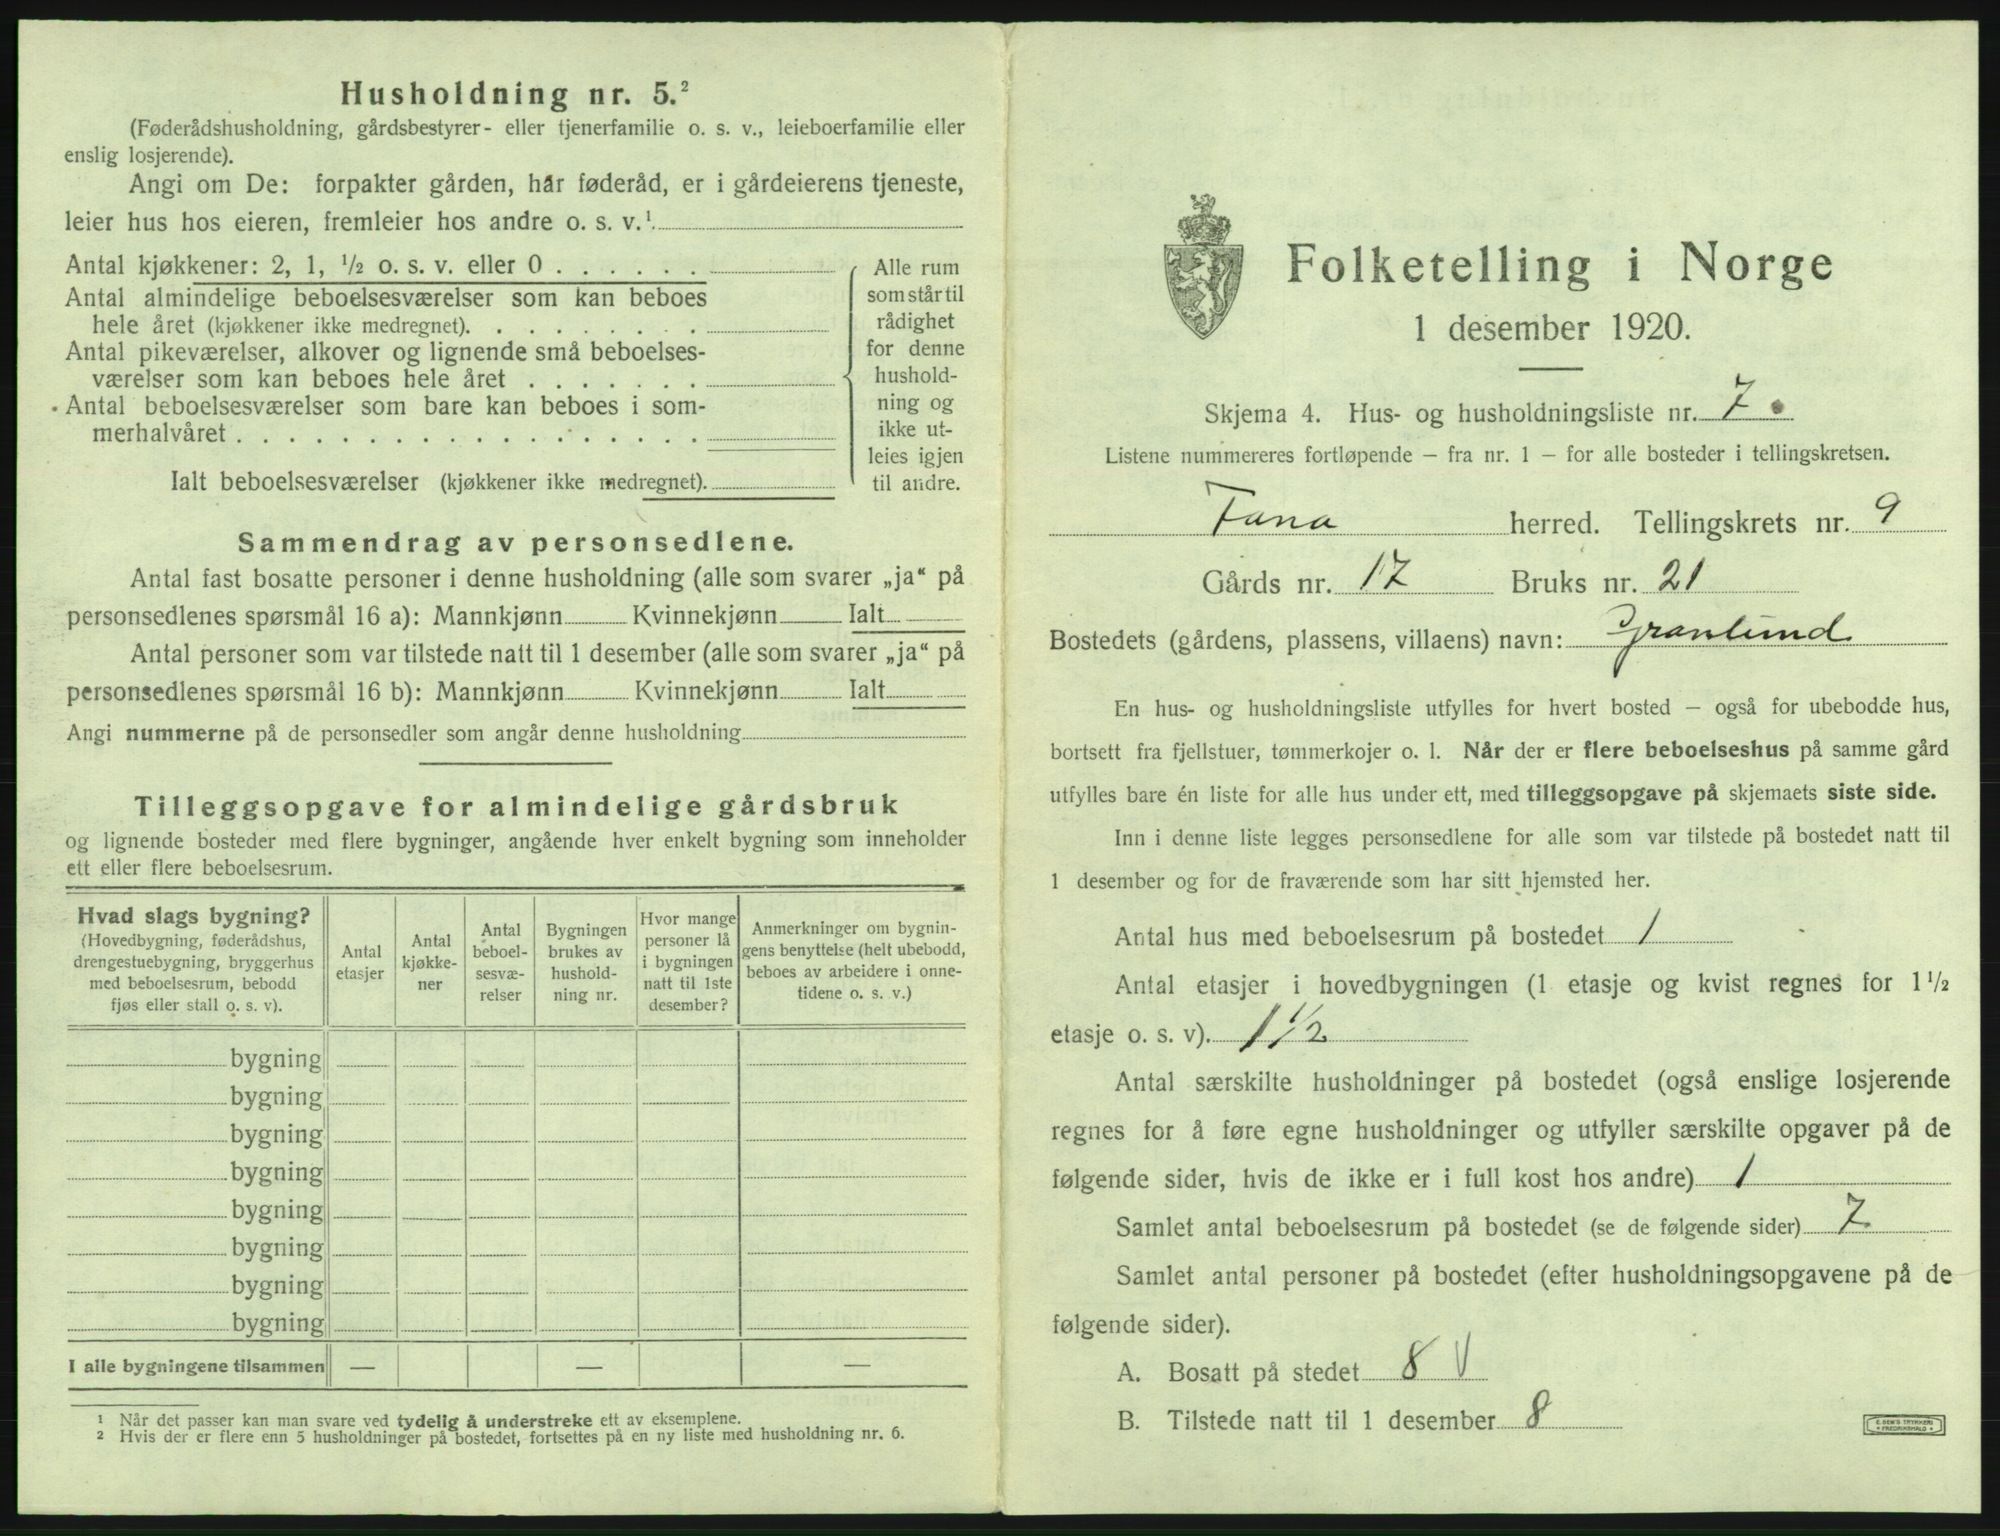 Husholdning nr. 5.²
(Føderådshusholdning, gårdsbestyrer- eller tjenerfamilie o. s. v., leieboerfamilie eller
enslig losjerende).
Angi om De: forpakter gården, har føderåd, er i gårdeierens tjeneste,
leier hus hos eieren, fremleier hos andre o. s. v.¹
Antal kjøkkener: 2, 1, ½ o. s. v. eller 0 . . . . . .
Antal almindelige beboelsesværelser som kan beboes
hele året (kjøkkener ikke medregnet). . . . . . . . .
Antal pikeværelser, alkover og lignende små beboelses-
værelser som kan beboes hele året . . . . . . .
Antal beboelsesværelser som bare kan beboes i som-
merhalvåret . . . . . . . . . . . . . . . . . .
Ialt beboelsesværelser (kjøkkener ikke medregnet).
Alle rum
som står til
rådighet
for denne
hushold-
ning og
ikke ut-
leies igjen
til andre.
Sammendrag av personsedlene.
Antal fast bosatte personer i denne husholdning (alle som svarer „ja“ på
personsedlenes spørsmål 16 a): Mannkjønn Kvinnekjønn Ialt
Antal personer som var tilstede natt til 1 desember (alle som svarer „ja“ på
personsedlenes spørsmål 16 b): Mannkjønn Kvinnekjønn Ialt
Angi nummerne på de personsedler som angår denne husholdning
Tilleggsopgave for almindelige gårdsbruk
og lignende bosteder med flere bygninger, angående hver enkelt bygning som inneholder
ett eller flere beboelsesrum.
Hvad slags bygning?
(Hovedbygning, føderådshus,
drengestuebygning, bryggerhus
med beboelsesrum, bebodd
fjøs eller stall o. s. v).
Antal
etasjer
Antal
kjøkke-
ner
Antal
beboel-
sesvæ-
relser
Bygningen
brukes av
hushold-
ning nr.
Hvor mange
personer lå
i bygningen
natt til 1ste
desember?
Anmerkninger om bygnin-
gens benyttelse (helt ubebodd,
beboes av arbeidere i onne-
tidene o. s. v.)
bygning
bygning
bygning
bygning
bygning
bygning
bygning
bygning
I alle bygningene tilsammen — — —
¹ Når det passer kan man svare ved tydelig å understreke ett av eksemplene.
² Hvis der er flere enn 5 husholdninger på bostedet, fortsettes på en ny liste med husholdning nr. 6.
Folketelling i Norge
1 desember 1920.
Skjema 4. Hus- og husholdningsliste nr. 7
Listene nummereres fortløpende – fra nr. 1 – for alle bosteder i tellingskretsen.
Fana herred. Tellingskrets nr. 9
Gårds nr. 17 Bruks nr. 21
Bostedets (gårdens, plassens, villaens) navn: Granlund
En hus- og husholdningsliste utfylles for hvert bosted – også for ubebodde hus,
bortsett fra fjellstuer, tømmerkojer o. l. Når der er flere beboelseshus på samme gård
utfylles bare én liste for alle hus under ett, med tilleggsopgave på skjemaets siste side.
Inn i denne liste legges personsedlene for alle som var tilstede på bostedet natt til
1 desember og for de fraværende som har sitt hjemsted her.
Antal hus med beboelsesrum på bostedet 1
Antal etasjer i hovedbygningen (1 etasje og kvist regnes for 1½
etasje o. s. v). 1½
Antal særskilte husholdninger på bostedet (også enslige losjerende
regnes for å føre egne husholdninger og utfyller særskilte opgaver på de
følgende sider, hvis de ikke er i full kost hos andre) 1
Samlet antal beboelsesrum på bostedet (se de følgende sider) 7
Samlet antal personer på bostedet (efter husholdningsopgavene på de
følgende sider).
A. Bosatt på stedet 8 V
B. Tilstede natt til 1 desember 8